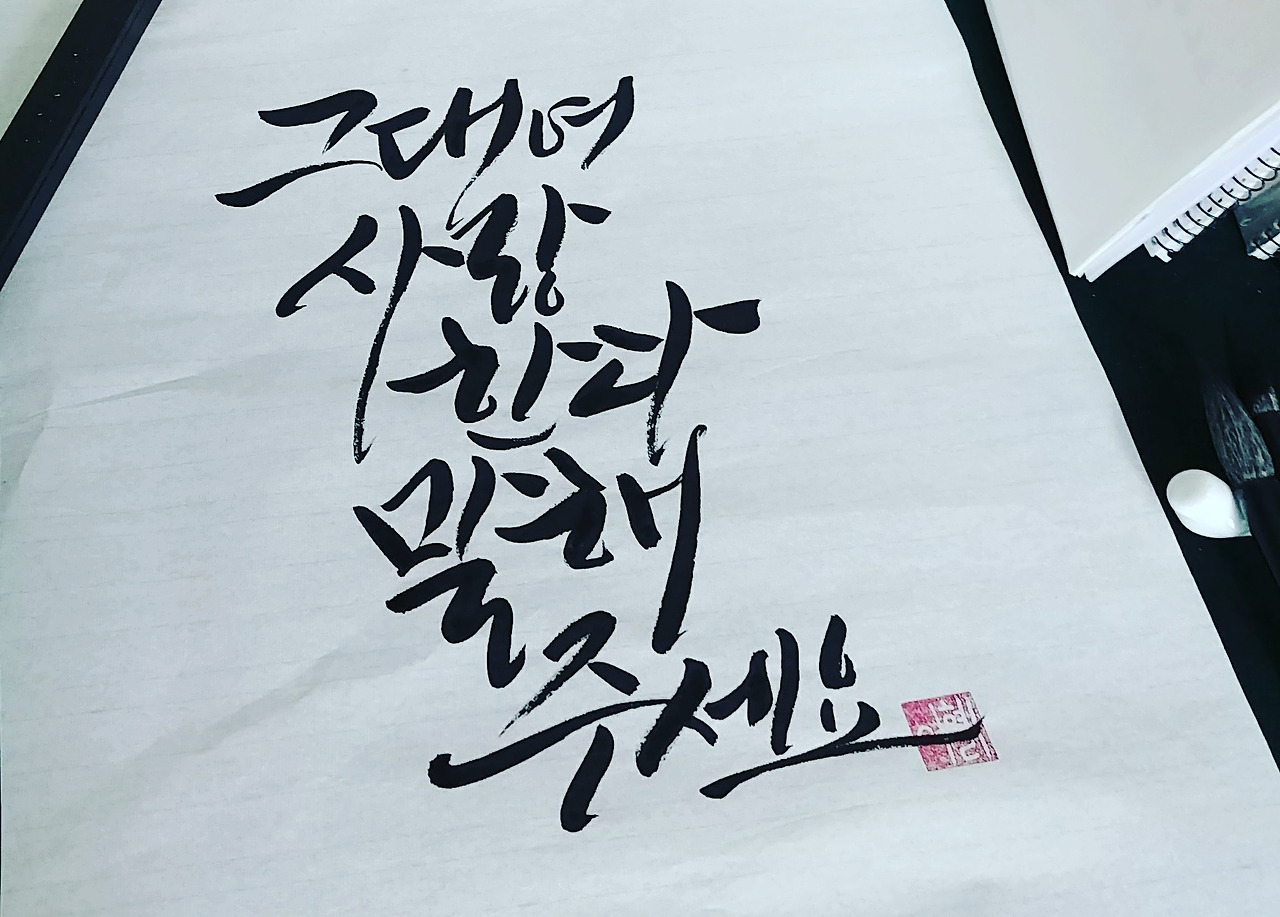 그대여
사랑
한다
말해
주세요